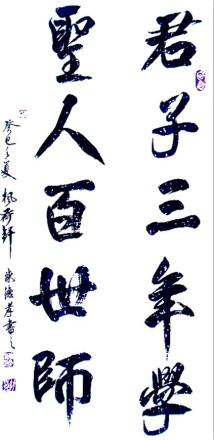 君子三年學
聖人百世師
癸巳之夏